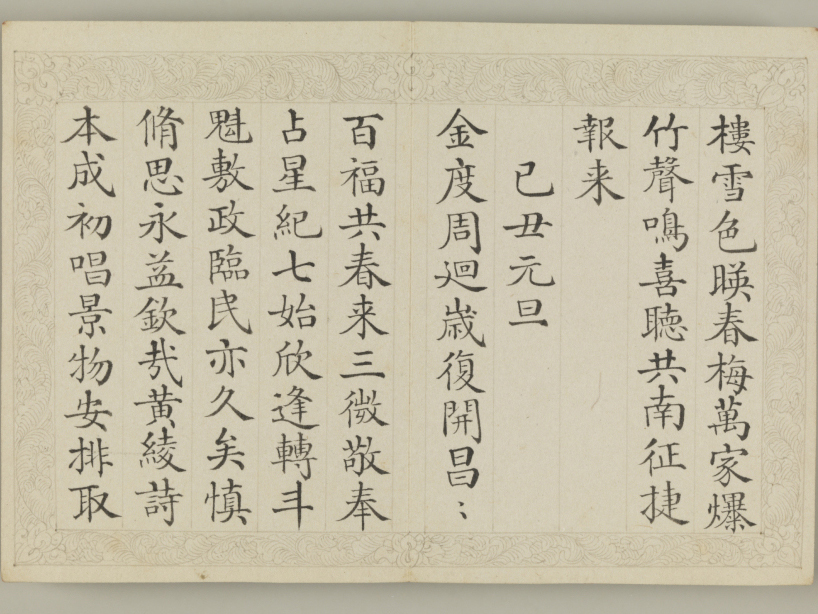 樓雪色暎春梅萬家爆
竹聲鳴喜聴共南征捷
報来
己丑元旦
金度周廻歲復開昌〻
百福共春来三微敬奉
占星紀七始欣逢轉斗
魁敷政臨民亦久矣慎
脩思永益欽哉黄綾詩
本成初唱景物安排取